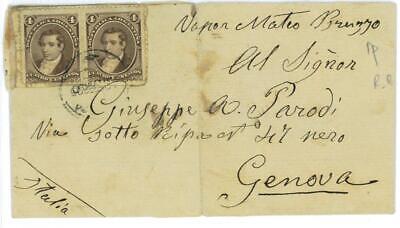 4 4 4 4
Vapor Mateo Bruzzo
Al Signor
Giuseppe A. Parodi
Via Sotto Ripa Nº 47 nero
Genova
Italia